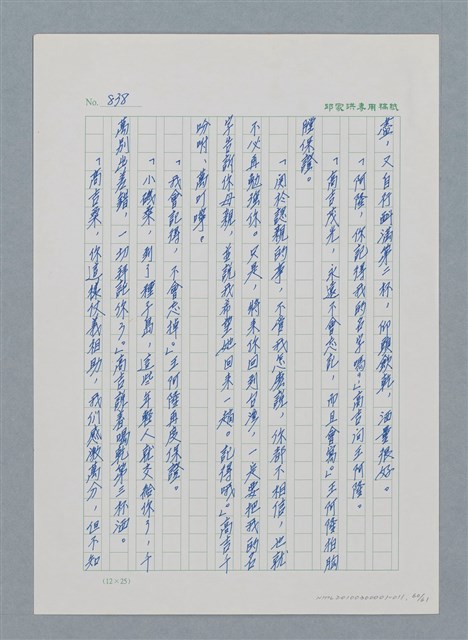 No. 838
邱家洪專用稿紙
盡，又自行斟滿第二杯，仰頭飲乾，酒量很好。
「阿隆，你記得我的名字嗎。」高吉問王阿隆。
「高吉茂先，永遠不會忘記，而且會寫。」王阿隆拍胸
脯保證。
「關於認親的事，不管我怎麼說，你都不相信，也就
不必再勉強你。只是，將來你回到台灣，一定要把我的名
字告訴你母親，並說我希望她回來一趟。記得哦。」高吉千
吩咐、萬叮嚀。
「我會記得，不會忘掉。」王阿隆再度保證。
「小磯桑，到了種子島，這些年輕人就交給你了，千
萬別出差錯，一切拜託你了。」高吉說著喝乾第三杯酒。
「高吉桑，你這樣仗義相助，我們感激萬分，但不知
(12×25)